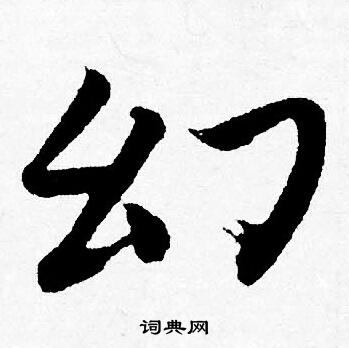 幻
词典网